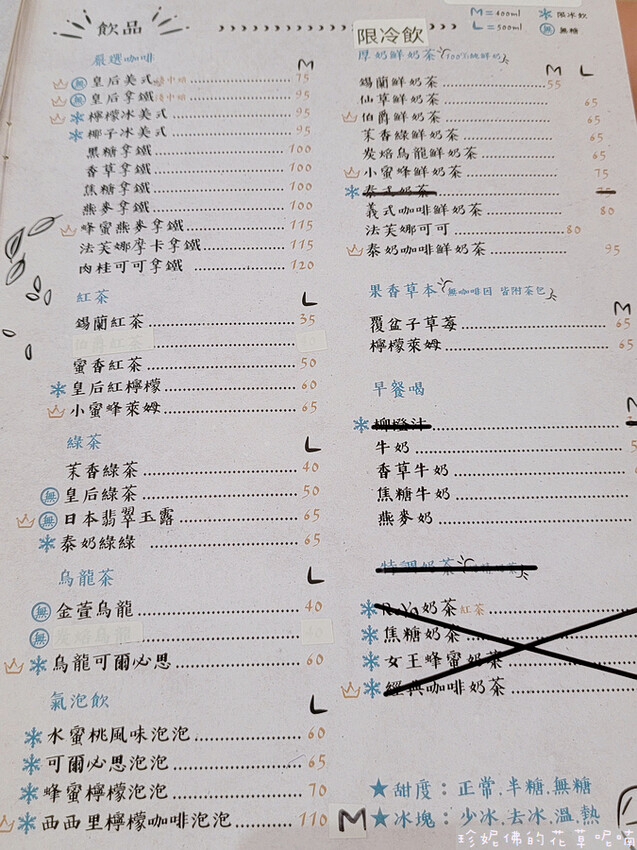 飲品
嚴選咖啡 M
無 皇后美式 淺中焙 75
無 皇后拿鐵 淺中焙 95
檸檬冰美式 95
椰子冰美式 95
黑糖拿鐵 100
香草拿鐵 100
焦糖拿鐵 100
燕麥拿鐵 100
蜂蜜燕麥拿鐵 115
法芙娜摩卡拿鐵 115
肉桂可可拿鐵 120
紅茶 L
錫蘭紅茶 35
伯爵紅茶
蜜香紅茶 50
皇后紅檸檬 60
小蜜蜂萊姆 65
綠茶 L
茉香綠茶 40
無 皇后綠茶 50
無 日本翡翠玉露 65
泰奶綠綠 65
烏龍茶 L
無 金萱烏龍 40
無 炭焙烏龍
烏龍可爾必思 60
氣泡飲 L
水蜜桃風味泡泡 60
可爾必思泡泡 65
蜂蜜檸檬泡泡 70
西西里檸檬咖啡泡泡 110 M
M=400ml 限冰飲
L=500ml 無 無糖
限冷飲
厚奶鮮奶茶 100%純鮮奶
M L
錫蘭鮮奶茶 55
仙草鮮奶茶 65
伯爵鮮奶茶 65
茉香綠鮮奶茶 65
炭焙烏龍鮮奶茶 65
小蜜蜂鮮奶茶 75
泰式奶茶
義式咖啡鮮奶茶 80
法芙娜可可 80
泰奶咖啡鮮奶茶 95
果香草本 無咖啡因 皆附茶包
M
覆盆子草莓 65
檸檬萊姆 65
早餐喝
柳橙汁
牛奶
香草牛奶
焦糖牛奶
燕麥奶
特調奶茶
奶茶 紅茶
焦糖奶茶
女王蜂蜜奶茶
經典咖啡奶茶
★甜度：正常.半糖.無糖
★冰塊：少冰.去冰.溫.熱
珍妮佛的花草呢喃